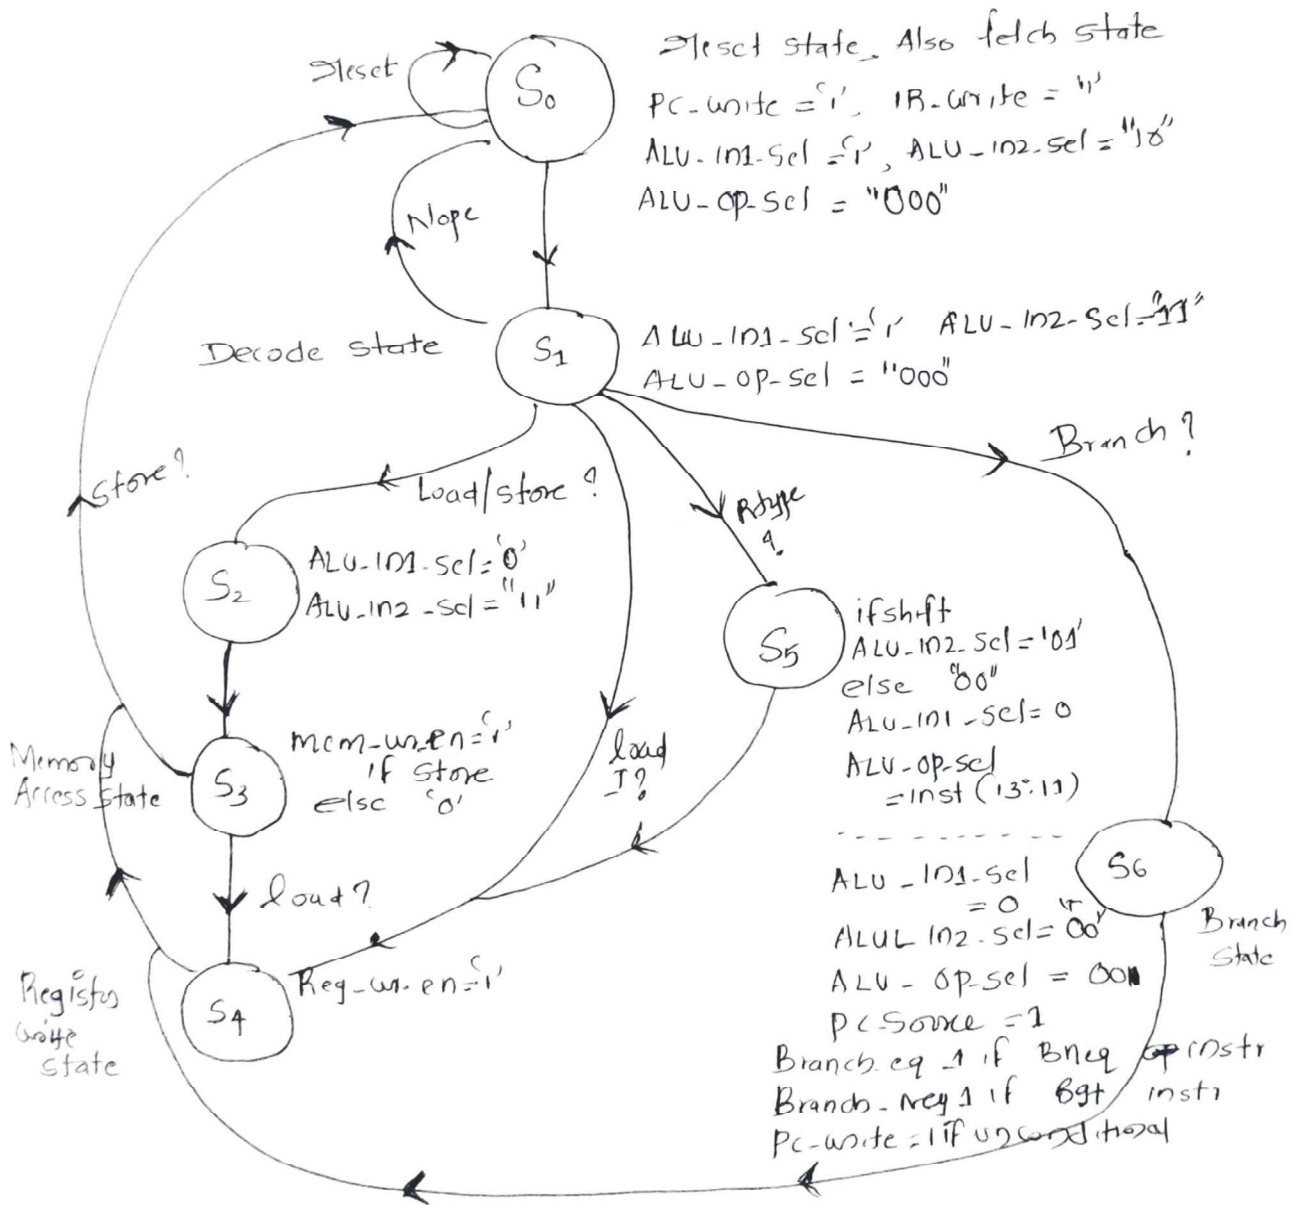 reset
S0
reset state. Also fetch state
PC-write = '1', IR-write = '1'
ALU-in1-sel = '1', ALU-in2-sel = "10"
ALU-op-sel = "000"
Nope
Decode state
S1
ALU-in1-sel = '1' ALU-in2-sel = "11"
ALU-op-sel = "000"
Branch?
Store?
Load/store?
Rtype
?
S2
ALU-in1-sel = '0'
ALU-in2-sel = "11"
S5
if shift
ALU-in2-sel = '01'
else "00"
ALU-in1-sel = 0
ALU-op-sel
= inst (13:11)
Memory
Access state
S3
mem-wr-en = '1'
if store
else '0'
load
I?
load?
S6
Branch
state
ALU-in1-sel
= 0
ALU in2-sel = "00"
ALU-op-sel =
PC Source = 1
Branch-eq 1 if Bneq instr
Branch-neg 1 if Bgt instr
PC-write = 1 if unconditional
Register
write
state
S4
Reg-wr-en = '1'